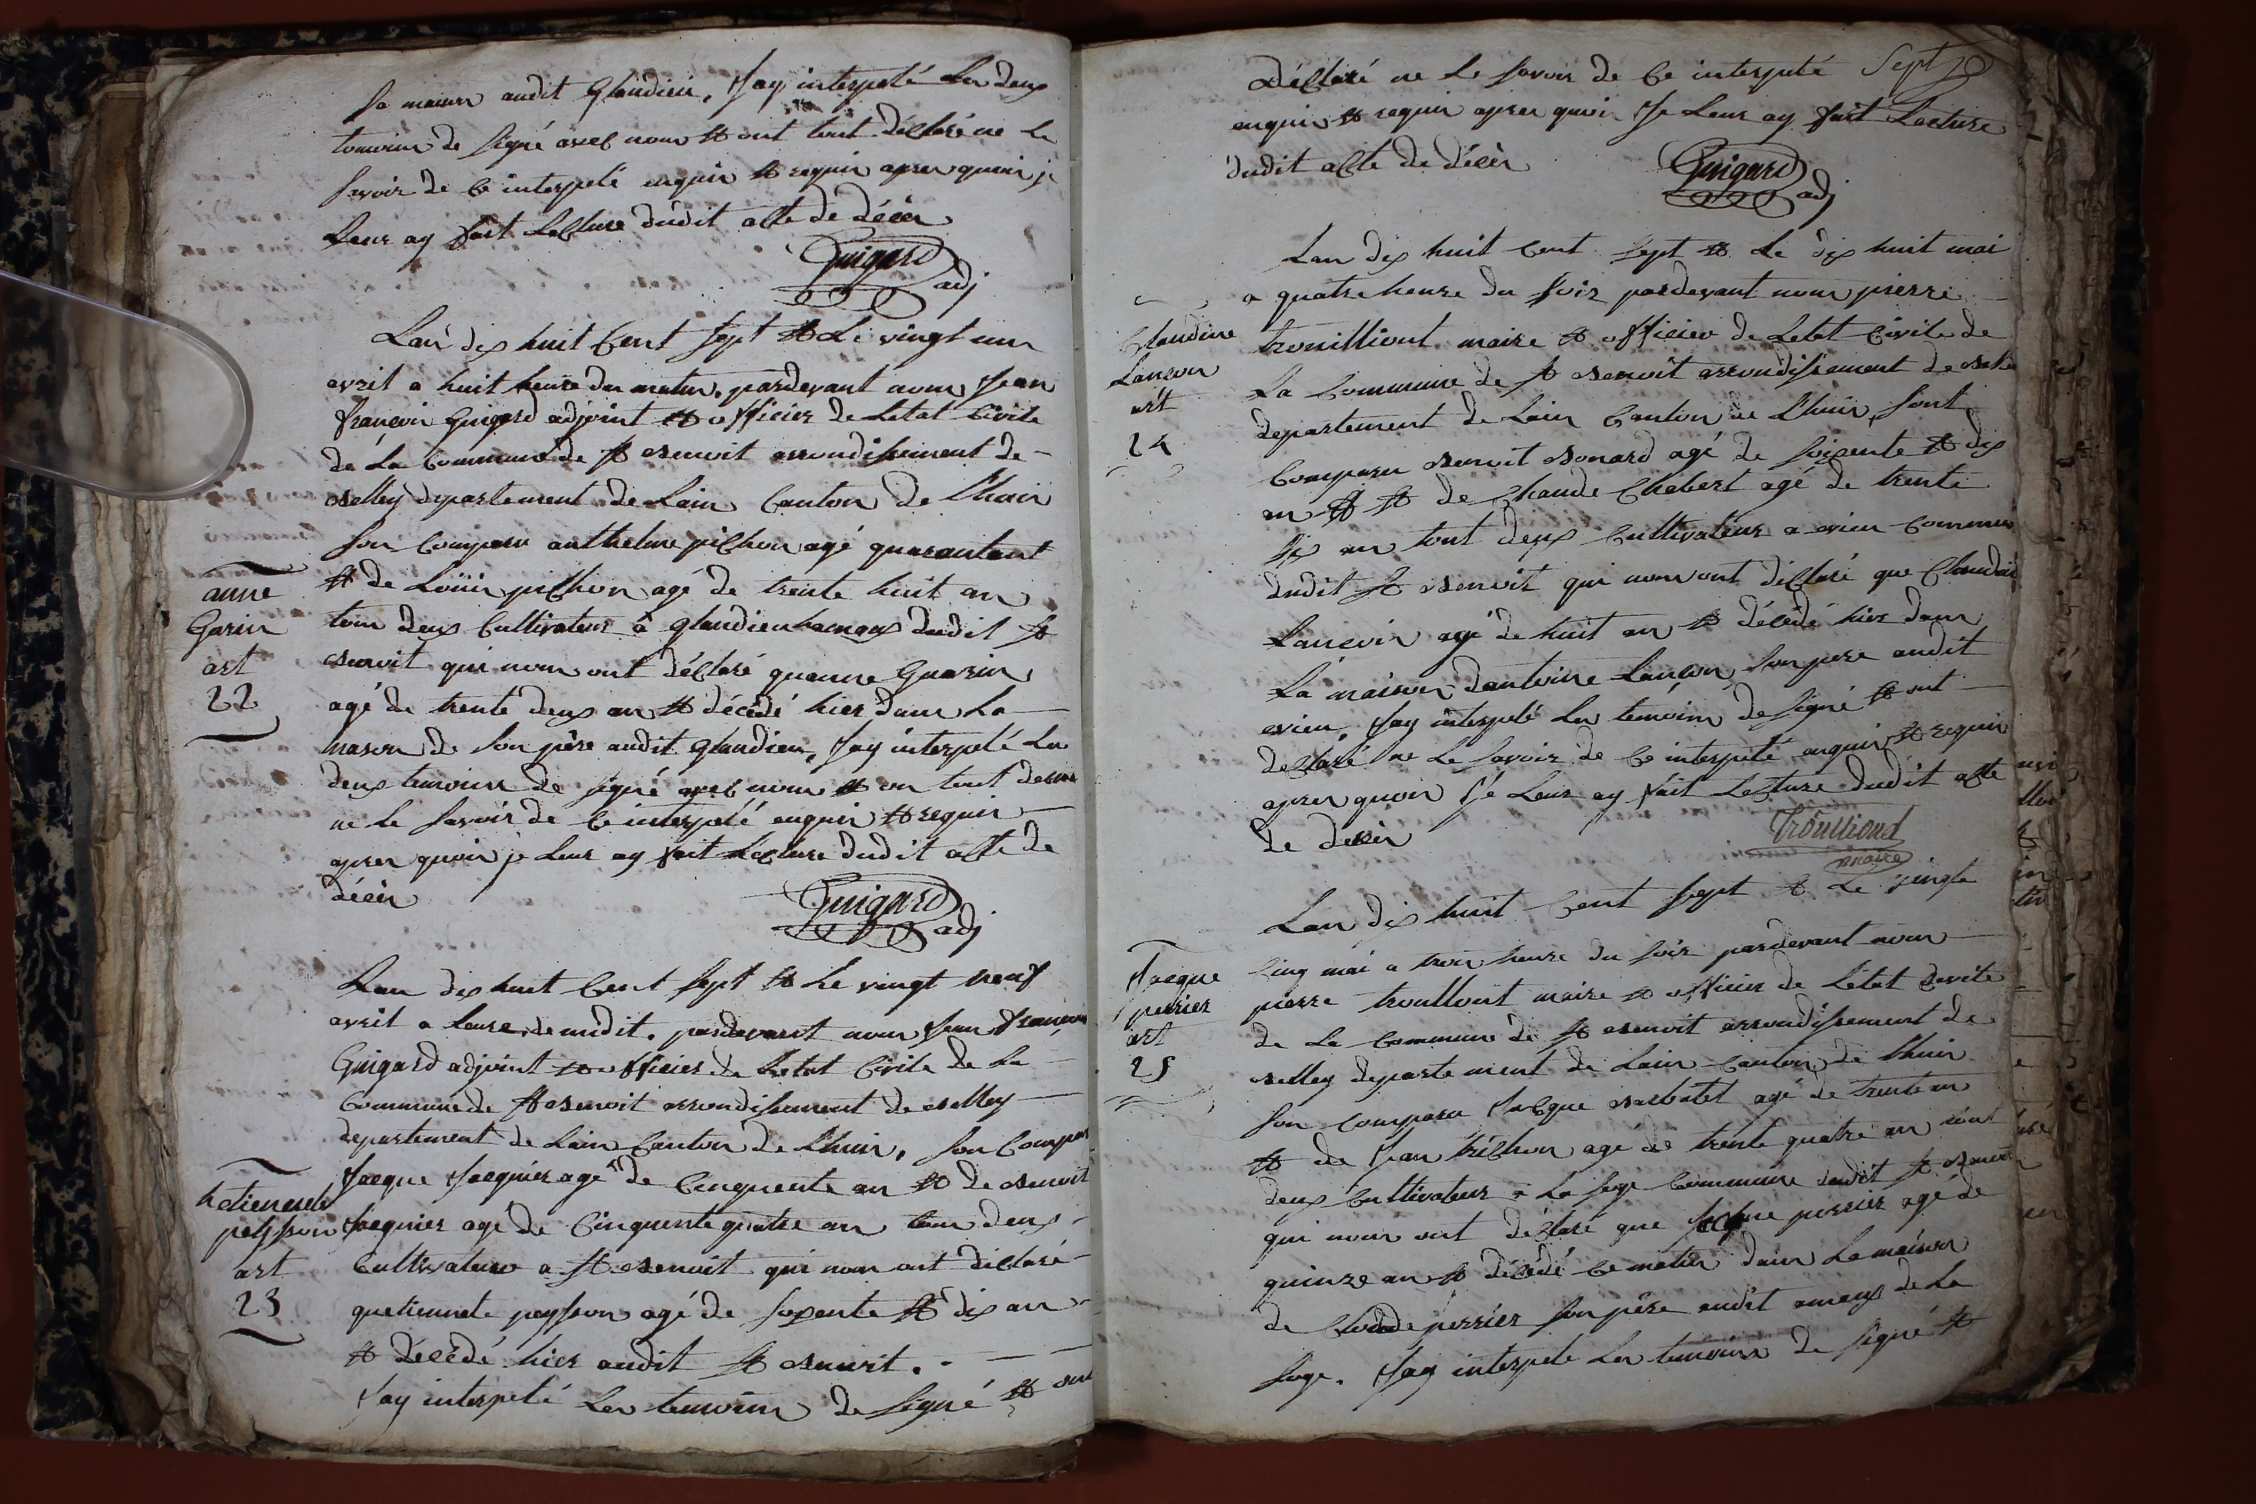 sa maison audit Glandieu, Jay interpelé Les deux
temoins de signé avec nous et ont tout déclaré ne Le
savoir de Ce interpelé enquis et requis apres quoi je
Leur ay fait Lecture dudit acte de décès
Guigard adj
Lan dix huit Cent sept et Le vingt un
avril a huit heure du matin, pardevant nous Jean
françois Guigard adjoint et officier de Letat Civile
de La Commune de St Benoit arrondissement de
Belley departement de Lain Canton de Lhuis
son Comparu anthelme pichon agé quarantant
et de Louis pichon agé de trente huit an
tous deux Cultivateur à Glandieu hameau dudit St
Benoit qui nous ont déclaré quanne Guarin
agé de trente deux an et décédé hier dans La
maison de son père audit Glandieu, Jay interpelé Les
deux temoins de signé avec nous et on tout
ne Le savoir de Ce interpelé enquis et requis
apres quoi je Leur ay fait Lecture dudit acte de
décès
Guigard adj
anne
Garin
art
22
Lan dix huit Cent sept et Le vingt neuf
avril a Leure de midit. pardevant nous Jean françois
Guigard adjoint et officier de Letat Civile de La
Commune de St Benoit arrondissement de Belley
departement de Lain Canton de Lhuis, son Comparu
Jacque Jacquier agé de Cinquente an et de Benoit
Jacquier agé de Cinquente quatre an tous deux
Cultivateur a St Benoit qui nous ont déclaré
quetiennete peysson agé de soixente et dix an
et décédé hier audit St Benoit.
Jay interpelé Les temoins de signé et ont
peysson
art
23
Sept
déclaré ne Le savoir de Ce interpelé
enquis et requis apres quoi Je Leur ay fait Lecture
dudit acte de décès
Guigard adj
Lan dix huit Cent sept et Le dix huit mai
a quatre heure du soir pardevant nous pierre
trouilliout maire et officier de Letat Civile de
La Commune de St Benoit arrondissement de
departement de Lain Canton de Lhuis, sont
Comparu Benoit Bonard agé de soixente et dix
an et de Claude Chabert agé de trente
dix an tout deux Cultivateur a evieu Commune
dudit St Benoit qui nous ont déclaré que Claudine
Lançoin agé de huit an et décédé hier dans
La maison dantoine Lançon son pere audit
evieu, Jay interpelé Les temoins de signé et ont
declaré ne Le savoir de Ce interpelé enquis et requis
apres quoi Je Leur ay fait Lecture dudit acte
de décès
Trouilliond
maire
Claudine
Lançon
art
24
Lan dix huit Cent sept et Le vingt
Cinq mai a trois heure du soir pardevant nous
pierre trouilliout maire et officier de Létat Civile
de La Commune de St Benoit arrondissement de
Belley departement de Lain Canton de Lhuis
son Comparu Jacque Barbatet agé de trente an
et de Jean trichon agé de trente quatre an tout
deux Cultivateur a La serge Commune dudit St Benoit
qui nous ont déclaré que Jacque perrier agé de
quinze an et décédé Ce matin dans La maison
de Claude perrier son père audit hameaux de La
serge. Jay interpelé Les temoins de signé et
Jacque
perrier
art
25